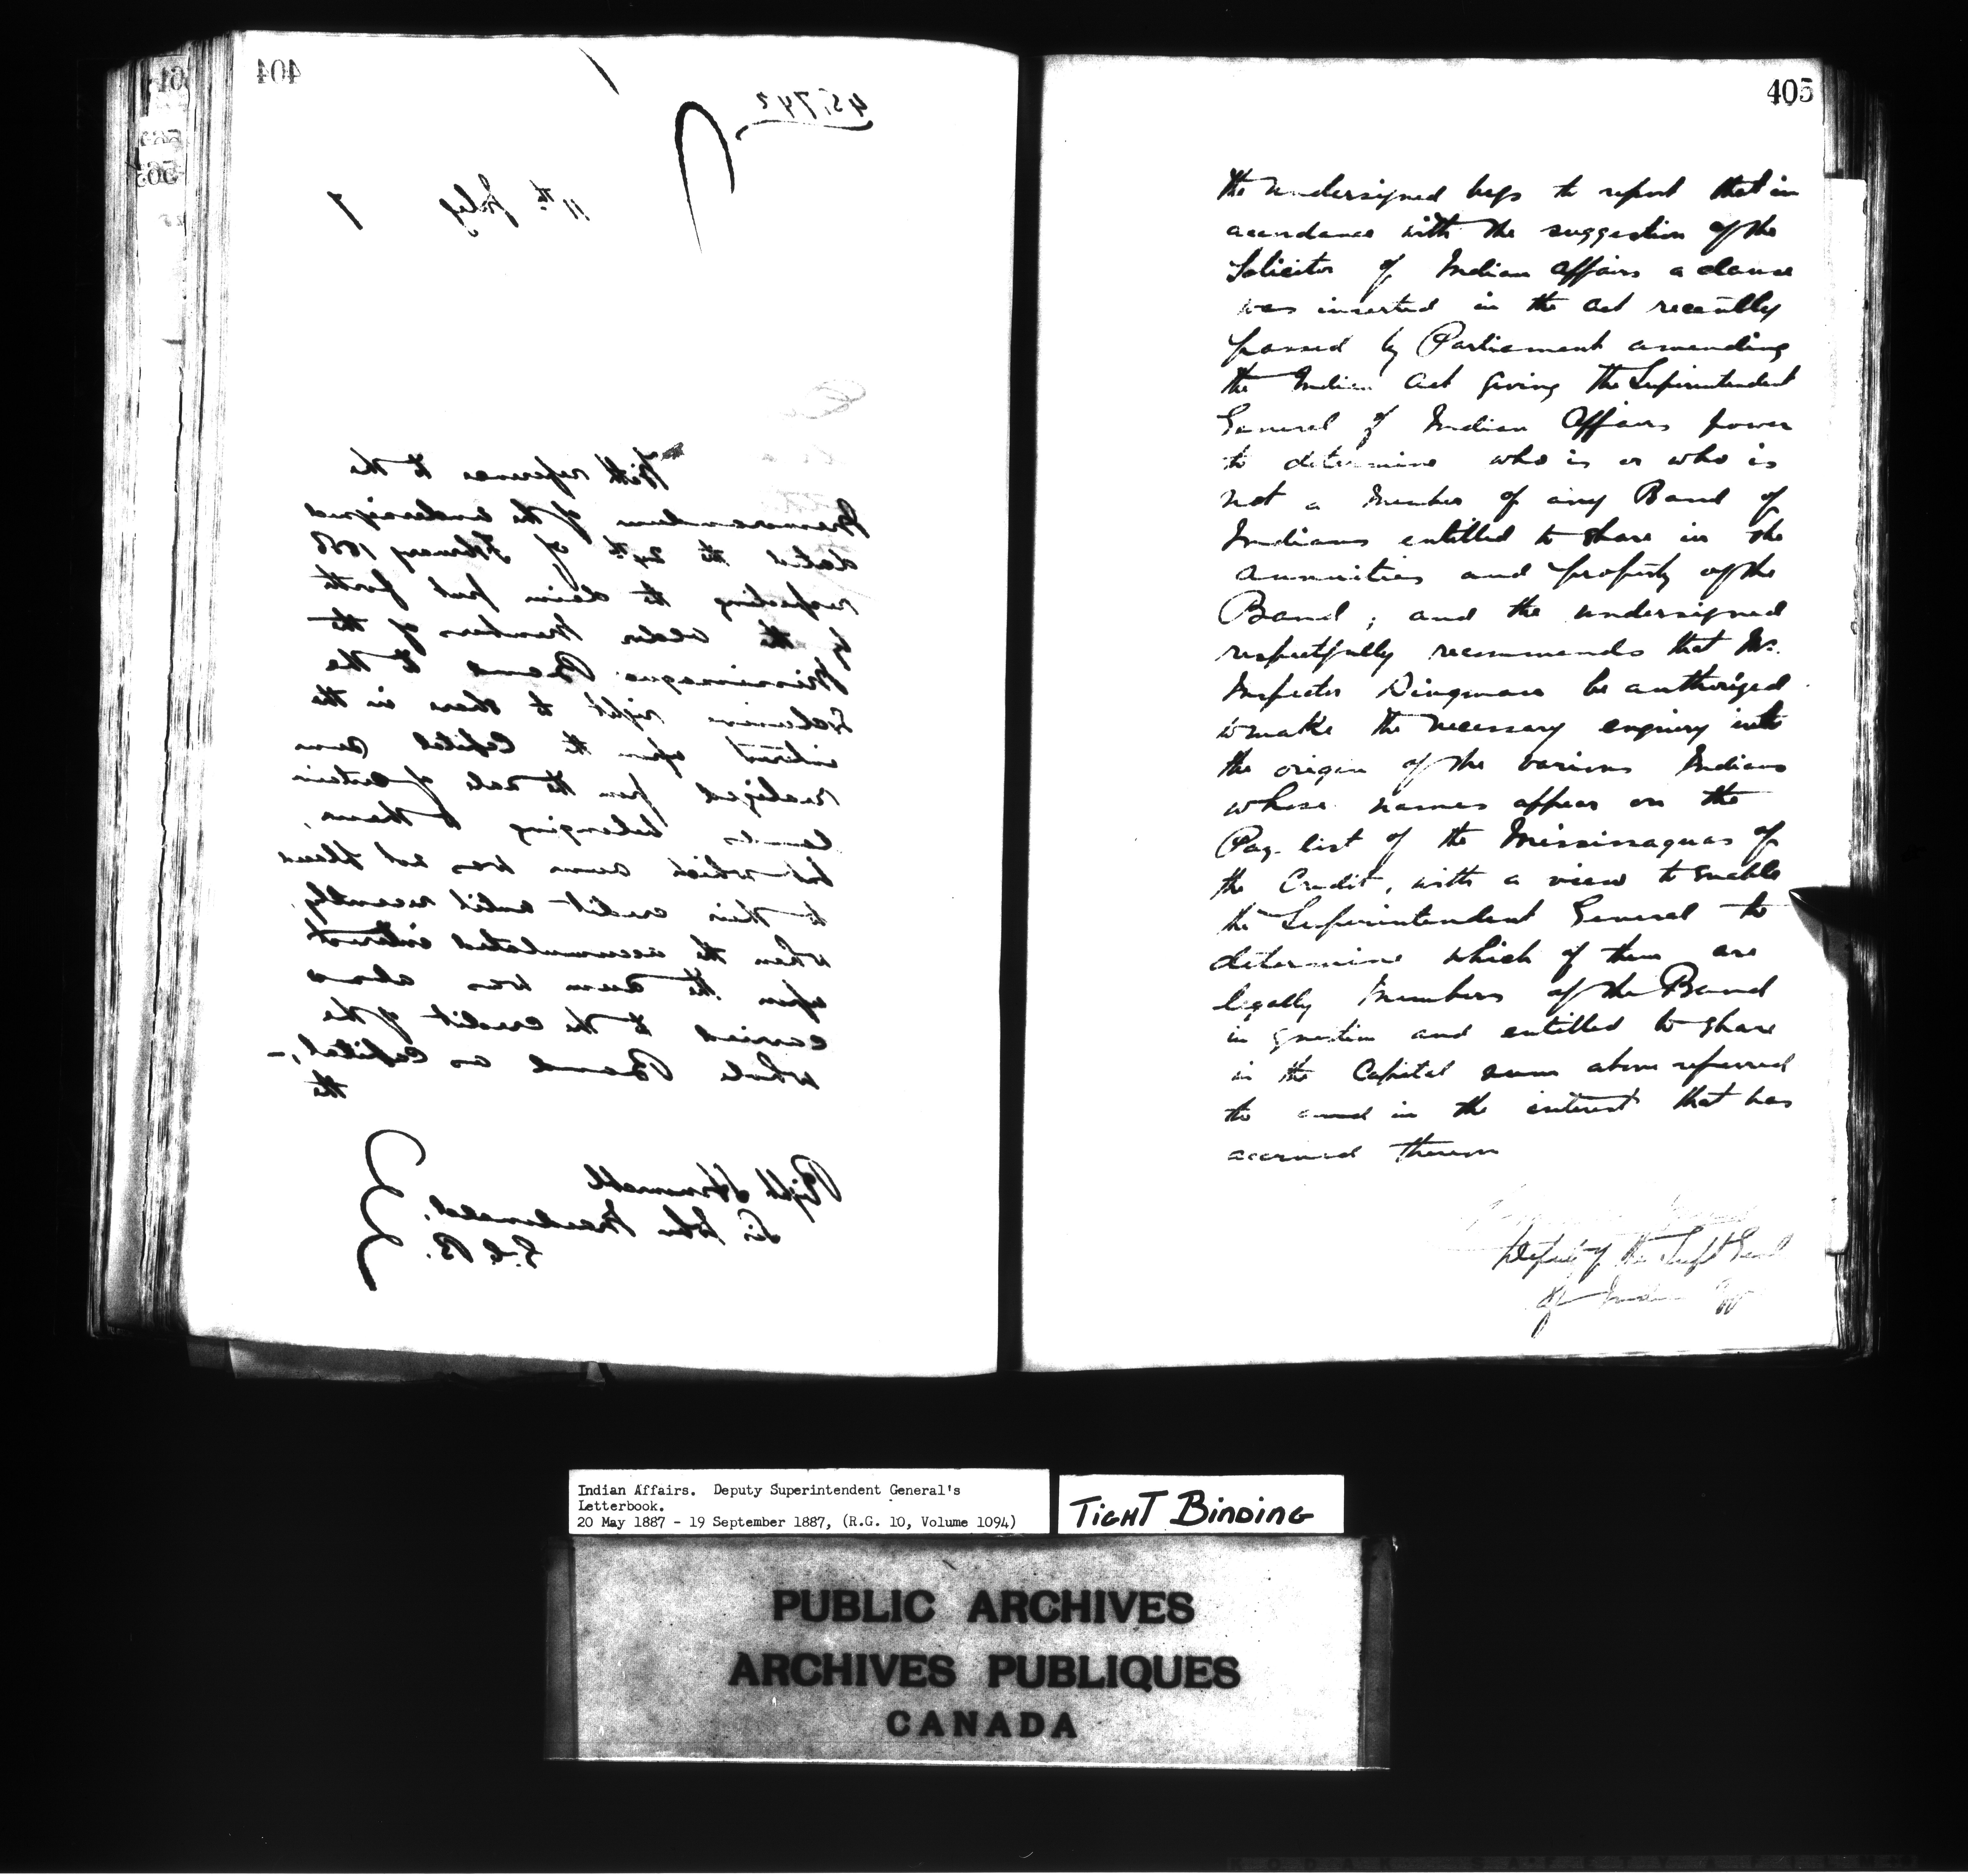 404
45,742
11th July 7
With reference to the
Memorandum of the undersigned
dated the 24th of February 1886
respecting the claim put forth
by the older members of the
Mississagua Band to the
Exclusive right to share in the
interest upon the Capital sum
realized from the sale of certain
lands belonging to them,
but which sum was not placed
to their credit until recently,
when the accumulated interest
upon the sum was also
carried to the credit of the
whole Band as Capital,-
the
Right Honorable
Sir John Macdonald,
G.C.B.
405
the undersigned begs to report that in
accordance with the suggestion of the
Solicitor of Indian Affairs a clause
was inserted in the Act recently
passed by Parliament amending
the Indian Act giving the Superintendent
General of Indian Affairs power
to determine who is or who is
not a Member of any Band of
Indians entitled to share in the
annuities and property of the
Band; and the undersigned
respectfully recommends that Mr.
Inspector Dingman be authorized
to make the necessary enquiry into
the origin of the various Indians
whose names appear on the
Pay-list of the Mississaguas of
the Credit, with a view to enable
the Superintendent General to
determine which of them are
legally Members of the Band
in question and entitled to share
in the Capital sum above referred
to and in the interest that has
accrued thereon
Deputy of the Supt Genl
of Indian Aff
Indian Affairs. Deputy Superintendent General's
Letterbook.
20 May 1887 - 19 September 1887, (R.G. 10, Volume 1094)
TIGHT BINDING
PUBLIC ARCHIVES
ARCHIVES PUBLIQUES
CANADA